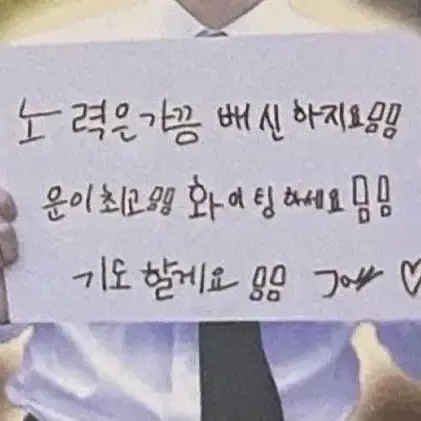 노력은가끔 배신하지요!!
운이최고!! 화이팅하세요!!
기도할게요 !! ♡